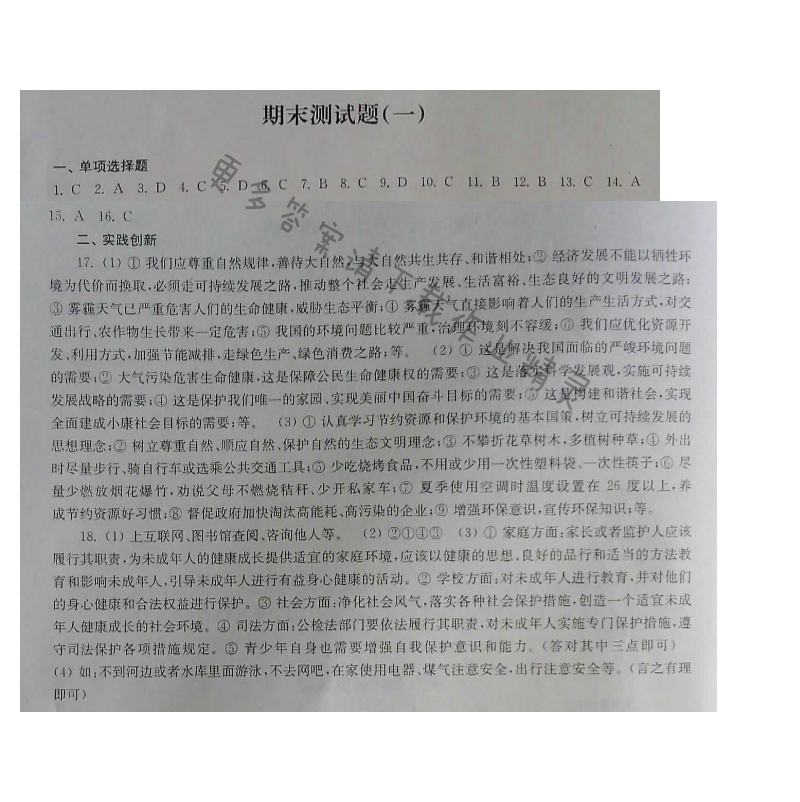 期末测试题(一)
一、单项选择题
1. C 2. A 3. D 4. C 5. D 6. C 7. B 8. C 9. D 10. C 11. B 12. B 13. C 14. A
15. A 16. C
二、实践创新
17. (1) ① 我们应尊重自然规律,善待大自然,与大自然共生共存、和谐相处;② 经济发展不能以牺牲环
境为代价而换取,必须走可持续发展之路,推动整个社会走生产发展、生活富裕、生态良好的文明发展之路;
③ 雾霾天气已严重危害人们的生命健康,威胁生态平衡;④ 雾霾天气直接影响着人们的生产生活方式,对交
通出行、农作物生长带来一定危害;⑤ 我国的环境问题比较严重,治理环境刻不容缓;⑥ 我们应优化资源开
发、利用方式,加强节能减排,走绿色生产、绿色消费之路;等。 (2) ① 这是解决我国面临的严峻环境问题
的需要;② 大气污染危害生命健康,这是保障公民生命健康权的需要;③ 这是落实科学发展观,实施可持续
发展战略的需要;④ 这是保护我们唯一的家园、实现美丽中国奋斗目标的需要;⑤ 这是构建和谐社会,实现
全面建成小康社会目标的需要;等。 (3) ① 认真学习节约资源和保护环境的基本国策,树立可持续发展的
思想理念;② 树立尊重自然、顺应自然、保护自然的生态文明理念;③ 不攀折花草树木,多植树种草;④ 外出
时尽量步行、骑自行车或选乘公共交通工具;⑤ 少吃烧烤食品,不用或少用一次性塑料袋、一次性筷子;⑥ 尽
量少燃放烟花爆竹,劝说父母不燃烧秸秆、少开私家车;⑦ 夏季使用空调时温度设置在 26 度以上,养
成节约资源好习惯;⑧ 督促政府加快淘汰高能耗、高污染的企业;⑨ 增强环保意识,宣传环保知识;等。
18. (1) 上互联网、图书馆查阅、咨询他人等。 (2) ②①④③ (3) ① 家庭方面:家长或者监护人应该
履行其职责,为未成年人的健康成长提供适宜的家庭环境,应该以健康的思想、良好的品行和适当的方法教
育和影响未成年人,引导未成年人进行有益身心健康的活动。② 学校方面:对未成年人进行教育,并对他们
的身心健康和合法权益进行保护。③ 社会方面:净化社会风气,落实各种社会保护措施,创造一个适宜未成
年人健康成长的社会环境。④ 司法方面:公检法部门要依法履行其职责,对未成年人实施专门保护措施,遵
守司法保护各项措施规定。⑤ 青少年自身也需要增强自我保护意识和能力。(答对其中三点即可)
(4) 如:不到河边或者水库里面游泳,不去网吧,在家使用电器、煤气注意安全,出行注意安全等。(言之有理
即可)
更多答案请下载作业精灵